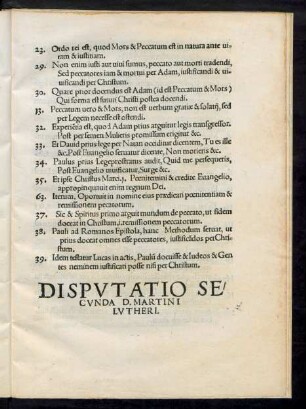 23. Ordo rei est, quod Mors & Peccatum est in natura ante ui-
tam & iustitiam.
29. Non enim iusti aut uiui sumus, peccato aut morti tradendi,
Sed peccatores iam & mortui per Adam, iustificandi & ui-
uificandi per Christum.
30. Quare prior docendus est Adam (id est Peccatum & Mors)
Qui forma est futuri Christi postea docendi.
31. Peccatum uero & Mors, non est uerbum gratiæ & solatij, sed
per Legem necesse est ostendi.
32. Experiẽtia est, quod Adam prius arguitur legis transgressor.
Post per semen Mulieris promissam erigitur &c.
33. Et Dauid prius lege per Natan occiditur dicentem, Tu es ille
&c. Post Euangelio seruatur dicente, Non morieris &c.
34. Paulus prius Lege prostratus audit, Quid me persequeris,
Post Euangelio uiuificatur, Surge &c.
35. Et ipse Christus Marci.1. Poenitemini & credite Euangelio,
appropinquauit enim regnum Dei.
36. Iterum, Oportuit in nomine eius prædicari poenitentiam &
remissionem peccatorum.
37. Sic & Spiritus primo arguit mundum de peccato, ut fidem
doceat in Christum, i. remissionem peccatorum.
38. Pauli ad Romanos Epistola, hanc Methodum seruat, ut
prius doceat omnes esse peccatores, iustificãdos per Chri-
stum.
39. Idem testatur Lucas in actis, Paulũ docuisse & Iudeos & Gen
tes neminem iustificari posse nisi per Christum.
DISPVTATIO SE/
CVNDA D. MARTINI
LVTHERI.